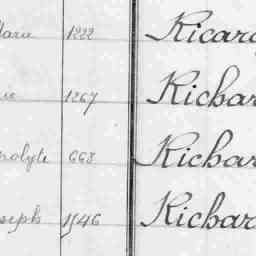 1222 Ricar
1267 Richar
nolyte 668 Richar
seph 1546 Richar